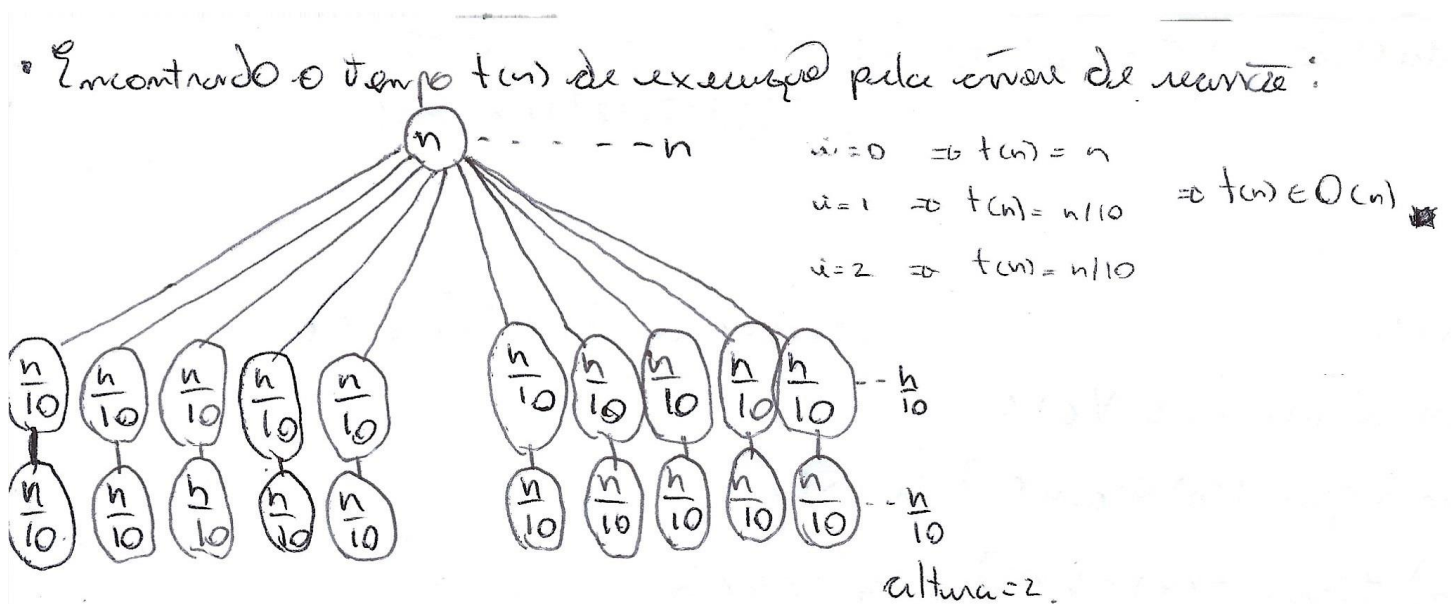 • Encontrando o tempo t(n) de execução pela árvore de recursão:
n - - - - - - n
i=0 => t(n) = n
i=1 => t(n) = n/10 => t(n) ∈ O(n)
i=2 => t(n) = n/10
n/10 n/10 n/10 n/10 n/10 n/10 n/10 n/10 n/10 n/10 -- n/10
n/10 n/10 n/10 n/10 n/10 n/10 n/10 n/10 n/10 n/10 -- n/10
altura=2.